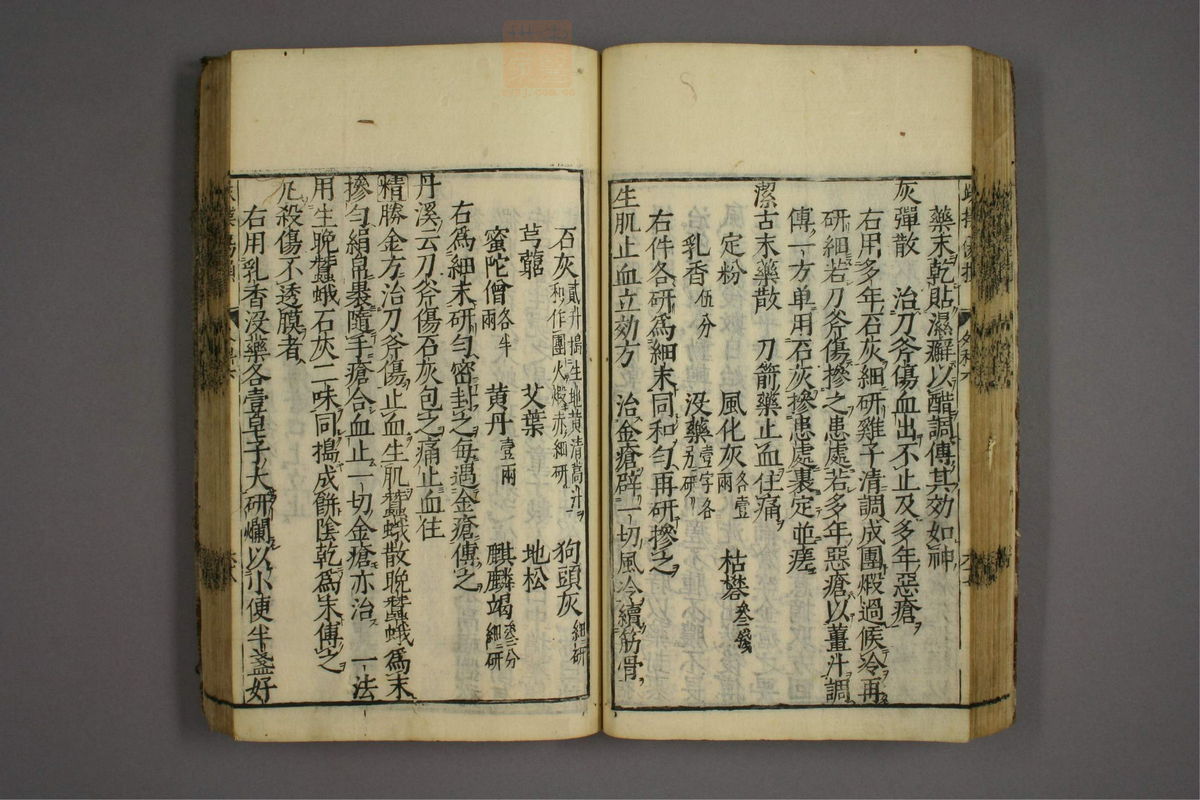 藥末乾貼濕癬以醋調傅其效如神
灰彈散　治刀斧傷血出不止及多年惡瘡
右用多年石灰細研雞子清調成團煆過候冷再
研細若刀斧傷摻之患處若多年惡瘡以薑汁調
傅一方单用石灰摻患處裹定並瘥
潔古末藥散　刀箭藥止血住痛
定粉　風化灰各壹兩　枯礬叁錢
乳香伍分　没藥壹字各另研
右件各研為細末同和匀再研摻之
生肌止血立効方　治金瘡辟一切風冷續筋骨
石灰貳升搗生地黄清蒿汁和作團火煆赤細研　狗頭灰細研
芎藭　艾葉　地松
蜜陀僧各半兩　黄丹壹兩　麒麟竭叁分細研
右為細末研匀密封之每遇金瘡傅之
丹溪云刀斧傷石灰包之痛止血住
精勝金方治刀斧傷止血生肌蠶蛾散晩蠶蛾為末
摻匀絹帛裹隨手瘡合血止一切金瘡亦治　一法
用生晩蠶蛾石灰二味同搗成餅陰乾為末傅之
凡殺傷不透膜者
右用乳香没藥各壹皂子大研爛以小便半盞好